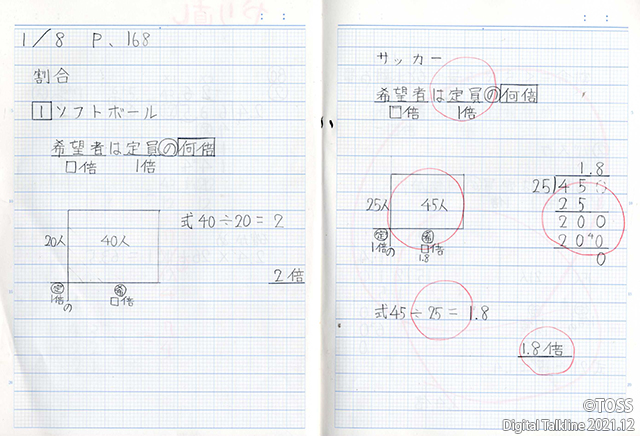 1/8 P、168
割合
1 ソフトボール
希望者は定員の何倍
□倍 1倍
20人 40人
定 希
1倍 の □倍
式 40÷20=2
2倍
サッカー
希望者は定員の何倍
□倍 1倍
25人 45人
定 希
1倍 の □倍
1.8
1.8
25 450
25
200
200
0
式 45÷25=1.8
1.8倍
©TOSS
Digital Talkline 2021.12